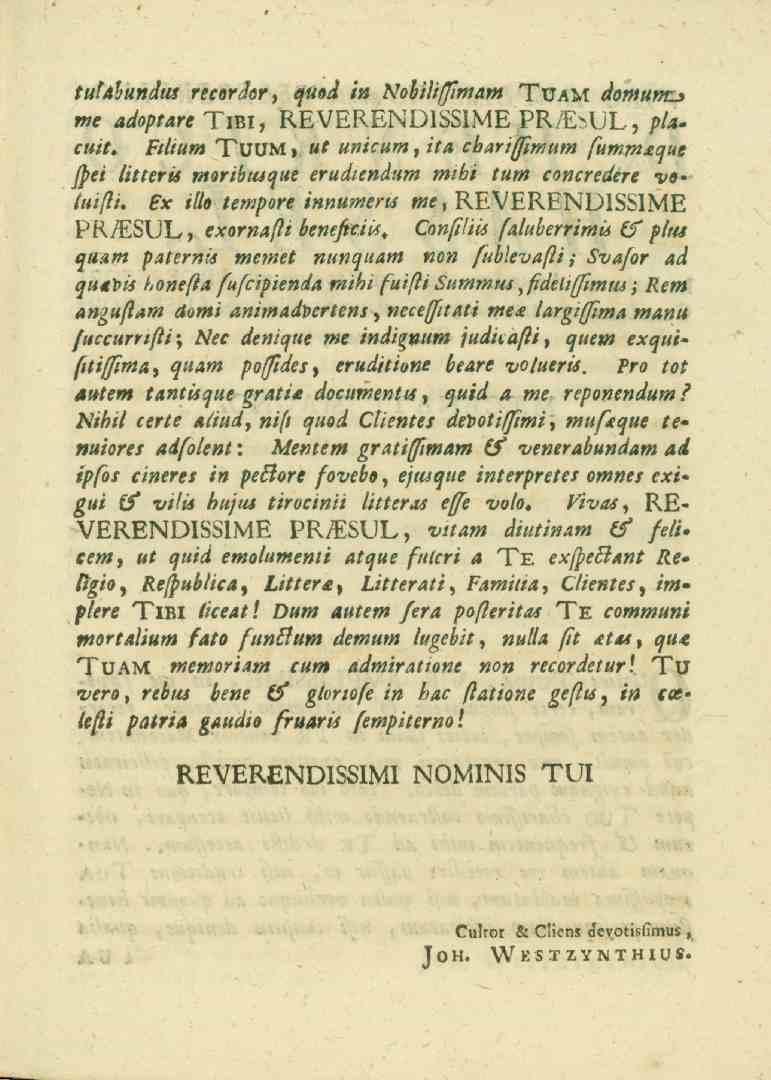 tulabundus recordor, quod in Nobilissimam TUAM domum
me adoptare TIBI, REVERENDISSIME PRÆSUL, pla-
cuit. Filium TUUM, ut unicum, ita charissimum summæque
spei litteris moribusque erudiendum mihi tum concredere vo-
luisti. Ex illo tempore innumeris me, REVERENDISSIME
PRÆSUL, exornasti beneficiis. Consiliis saluberrimis & plus
quam paternis memet nunquam non sublevasti; Svasor ad
quævis honesta suscipienda mihi fuisti Summus, fidelissimus; Rem
angustam domi animadvertens, necessitati meæ largissima manu
succurristi; Nec denique me indignum judicasti, quem exqui-
sitissima, quam possides, eruditione beare volueris. Pro tot
autem tantisque gratiæ documentis, quid a me reponendum?
Nihil certe aliud, nisi quod Clientes devotissimi, musæque te-
nuiores adsolent: Mentem gratissimam & venerabundam ad
ipsos cineres in pectore fovebo, ejusque interpretes omnes exi-
gui & vilis hujus tirocinii litteras esse volo. Vivas, RE-
VERENDISSIME PRÆSUL, vitam diutinam & feli-
cem, ut quid emolumenti atque fulcri a TE exspectant Re-
ligio, Respublica, Litteræ, Litterati, Familia, Clientes, im-
plere TIBI liceat! Dum autem sera posteritas TE communi
mortalium fato functum demum lugebit, nulla sit ætas, quæ
TUAM memoriam cum admiratione non recordetur! TU
vero, rebus bene & gloriose in hac statione gestis, in cœ-
lesti patria gaudio fruaris sempiterno!
REVERENDISSIMI NOMINIS TUI
Cultor & Cliens devotissimus,
JOH. WESTZYNTHIUS.